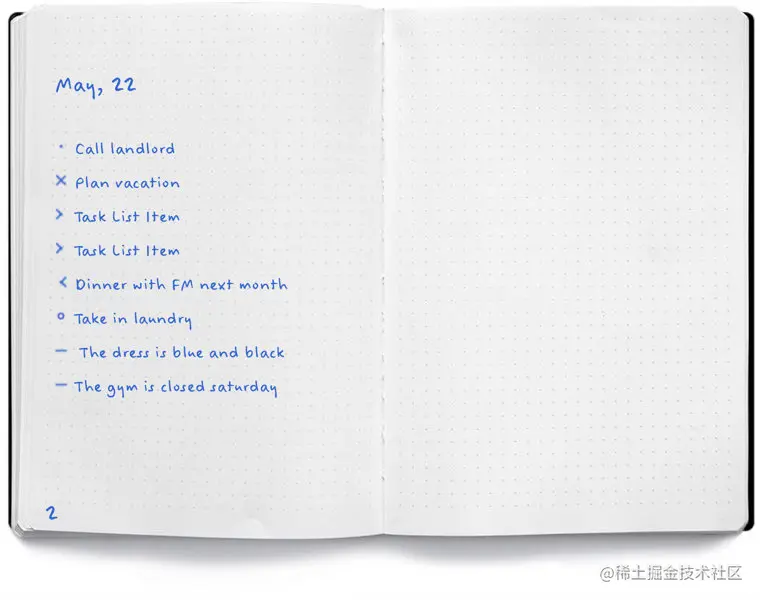 May, 22
· Call landlord
× Plan vacation
> Task List Item
> Task List Item
< Dinner with FM next month
o Take in laundry
— The dress is blue and black
— The gym is closed saturday
2
@稀土掘金技术社区